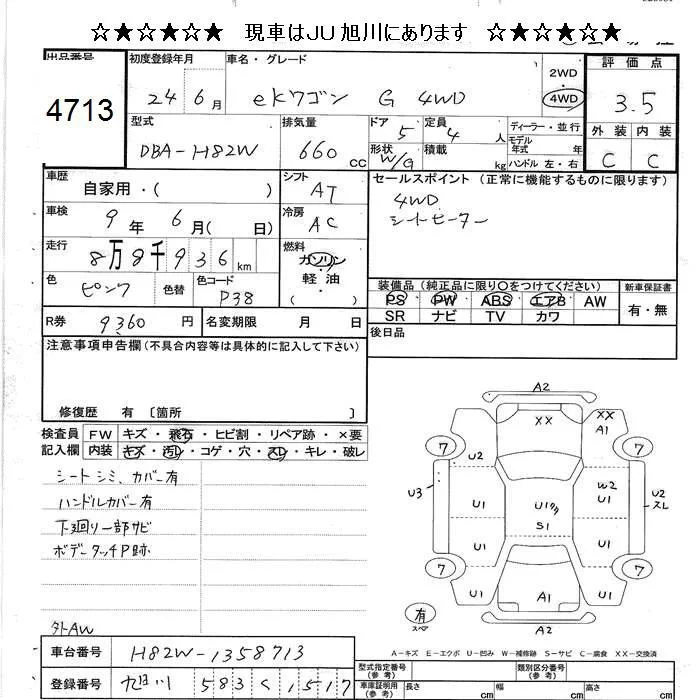 ☆★☆★☆★ 現車はJU旭川にあります ☆★☆★☆★
出品番号 初度登録年月 車名・グレード 2WD 評価点
4713 24年 6月 ekワゴン G 4WD 4WD 3.5
型式 排気量 ドア 5 定員 4人 ディーラー・並行 外装 内装
DBA-H82W 660cc 形状 W/G 積載 kg モデル年式 年 C C
ハンドル 左・右
車歴 シフト セールスポイント (正常に機能するものに限ります)
自家用・( ) AT 4WD
車検 冷房 シートヒーター
9年 6月( 日) AC
走行 燃料
8万8千936km ガソリン
軽油
( )
色 色替 色コード 装備品 (純正品に限り○をつけてください) 新車保証書
ピンク P38 PS PW ABS エアB AW 有・無
SR ナビ TV カワ
R券 9360円 名変期限 月 日 後日品
注意事項申告欄(不具合内容等は具体的に記入して下さい)
修復歴 有 〔箇所 〕
検査員 FW キズ・飛石・ヒビ割・リペア跡・×要
記入欄 内装 キズ・汚レ・コゲ・穴・スレ・キレ・破レ
シートシミ、カバー有
ハンドルカバー有
下廻り一部サビ
ボデータッチP跡
外AW
A2
XX XX
A1
7 7
U2
U3 U1 W2
U1 U2
スレ
S1
U1 U1
7 7
U1 A1 U1
有
スペア A2
A-キズ E-エクボ U-凹み W-補修跡 S-サビ C-腐食 XX-交換済
車台番号 H82W-1358713
登録番号 旭川 583 く 1517
型式指定番号
(参考) 類別区分番号
(参考)
車庫証明用
(参考) 長さ cm 幅 cm 高さ cm